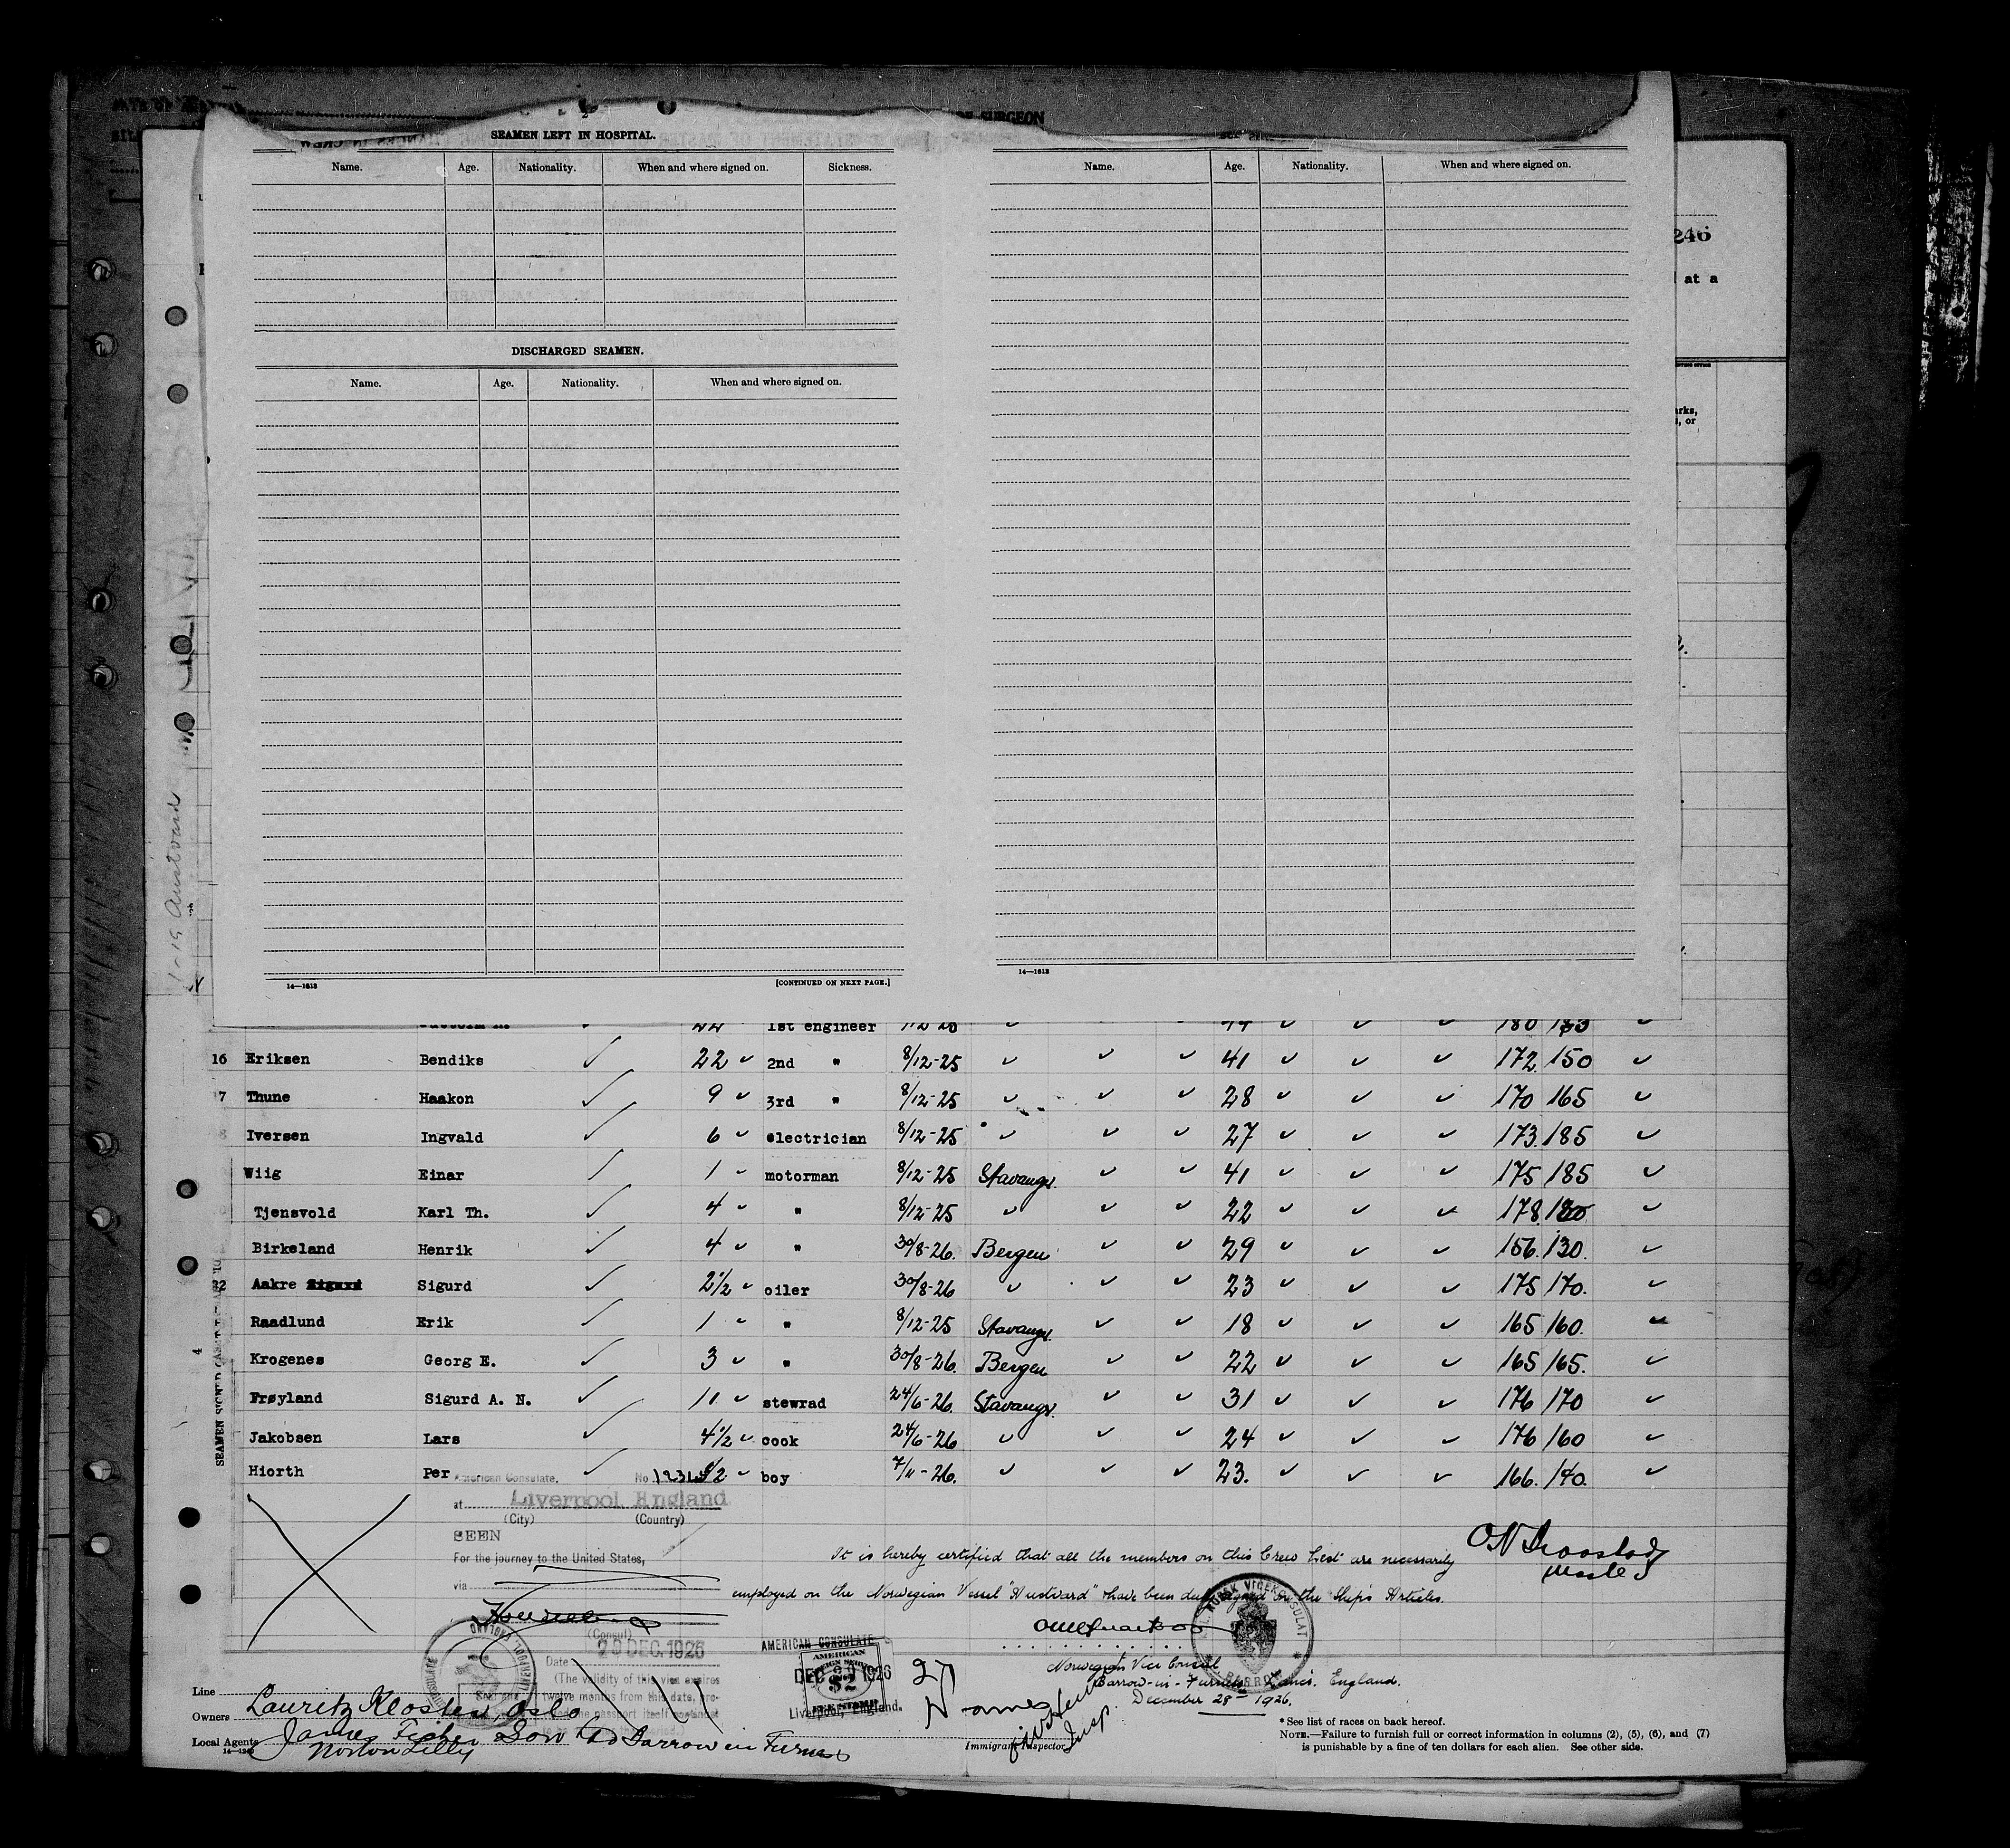 OF SURGEON
SEAMEN LEFT IN HOSPITAL.
Name. Age. Nationality. When and where signed on. Sickness.
Name. Age. Nationality. When and where signed on.
246
at a
DISCHARGED SEAMEN.
Name. Age. Nationality. When and where signed on.
14—1613 [CONTINUED ON NEXT PAGE.]
14—1613
1st engineer
16 Eriksen Bendiks ✓ 22 ✓ 2nd " 8/12-25 ✓ ✓ ✓ 41 ✓ ✓ ✓ 172 150 ✓
17 Thune Haakon ✓ 9 ✓ 3rd " 8/12-25 ✓ ✓ ✓ 28 ✓ ✓ ✓ 170 165 ✓
Iversen Ingvald ✓ 6 ✓ electrician 8/12-25 ✓ ✓ ✓ 27 ✓ ✓ ✓ 173 185 ✓
Wiig Einar ✓ 1 ✓ motorman 8/12-25 Stavanger ✓ ✓ 41 ✓ ✓ ✓ 175 185 ✓
Tjensvold Karl Th. ✓ 4 ✓ " 8/12-25 ✓ ✓ ✓ 22 ✓ ✓ ✓ 178 ✓
Birkeland Henrik ✓ 4 ✓ " 30/8-26. Bergen ✓ ✓ 29 ✓ ✓ ✓ 156. 130. ✓
Aakre Sigurd Sigurd ✓ 2 1/2 ✓ oiler 30/8-26 ✓ ✓ ✓ 23 ✓ ✓ ✓ 175 170. ✓
Raadlund Erik ✓ 1 ✓ " 8/12-25 Stavanger ✓ ✓ 18 ✓ ✓ ✓ 165 160. ✓
Krogenes Georg E. ✓ 3 ✓ " 30/8-26. Bergen ✓ ✓ 22 ✓ ✓ ✓ 165 165. ✓
Frøyland Sigurd A. N. ✓ 11 ✓ stewrad 24/6-26. Stavanger ✓ ✓ 31 ✓ ✓ ✓ 176 170 ✓
Jakobsen Lars ✓ 4 1/2 ✓ cook 24/6-26 ✓ ✓ ✓ 24 ✓ ✓ ✓ 176 160 ✓
Hiorth Per ✓ boy 7/11-26. ✓ ✓ ✓ 23. ✓ ✓ ✓ 166. 140. ✓
American Consulate, No
at Liverpool, England
(City) (Country)
SEEN
For the journey to the United States,
via
(Consul)
Date 29 DEC. 1926
(The validity of this visa expires
twelve months from this date,
the passport itself
It is hereby certified that all the members on this Crew List are necessarily
employed on the Norwegian Vessel have been duly signed on the Ship's Articles.
Norwegian Vice Consul
Barrow-in-Furness Lancs. England.
December 28th 1926.
AMERICAN CONSULATE
DEC 29 1926
Liverpool, England.
AMERICAN
$2
FEE STAMP
27
Names
Line
Owners Lauritz Kloster, Oslo
Local Agents James Fisher Son Ltd Barrow in Furness
Norton Lilly
14—1240
Immigrant Inspector
Insp.
* See list of races on back hereof.
NOTE.—Failure to furnish full or correct information in columns (2), (5), (6), and (7)
is punishable by a fine of ten dollars for each alien. See other side.